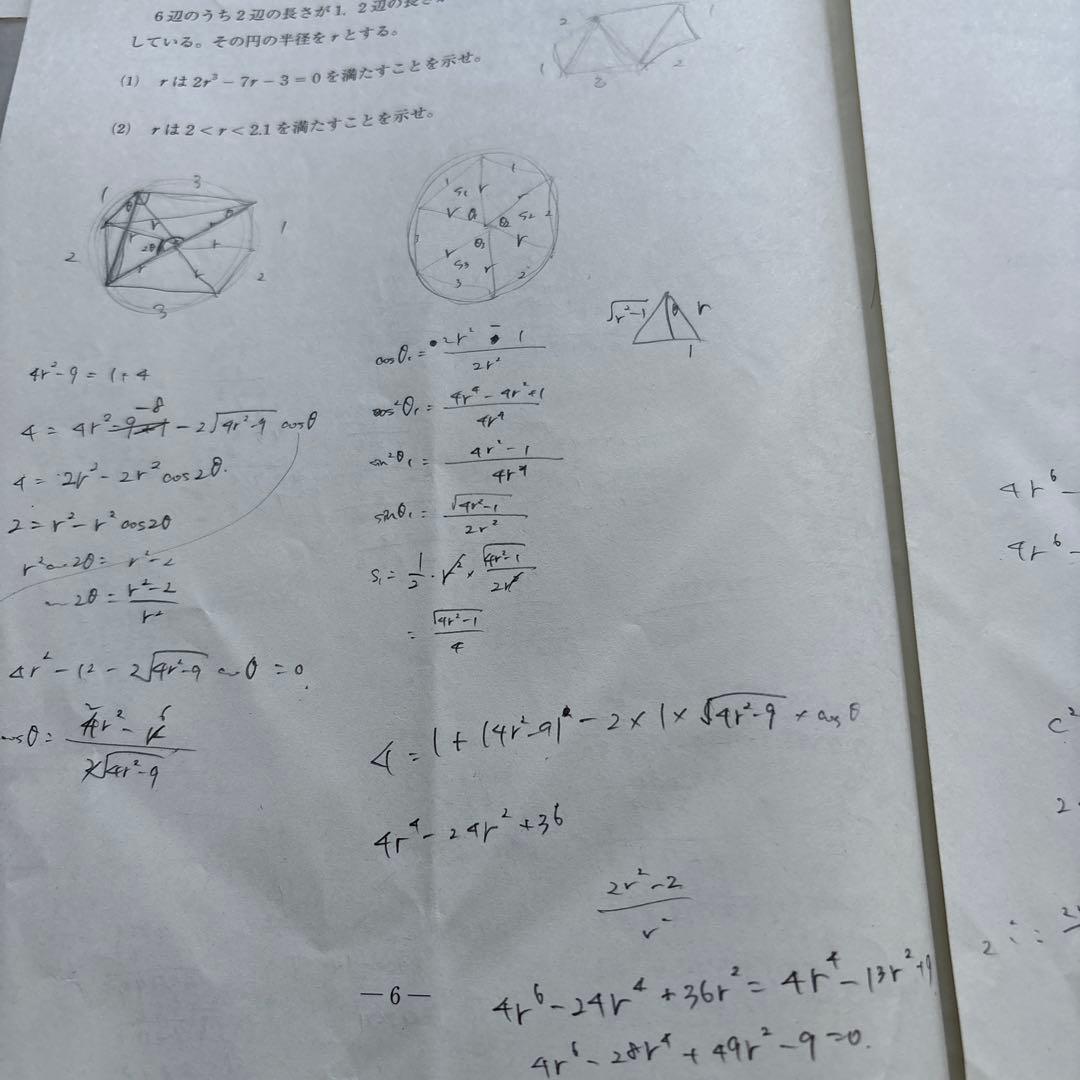 6辺のうち2辺の長さが1, 2辺の長さが
している。その円の半径をrとする。
(1) rは2r³−7r−3=0を満たすことを示せ。
(2) rは2<r<2.1を満たすことを示せ。
2
1
1
3
2
1
3
2
1
2
3
θ
θ
2θ
r
r
r
r
1
1
2
2
3
3
S₁
S₂
S₃
θ₁
θ₂
θ₃
r
r
r
r
r
√r²-1
θ
r
1
4r²-9 = 1+4
4 = 4r²-8 - 2√4r²-9 cosθ
4 = 2r² - 2r² cos2θ.
2 = r² - r² cos2θ
r² cos2θ = r²-2
cos2θ = r²-2 / r²
4r² - 12 - 2√4r²-9 cosθ = 0.
cosθ = 4r² - 12 / 2√4r²-9
2
6
cosθ₁ = 2r² - 1 / 2r²
cos²θ₁ = 4r⁴ - 4r² + 1 / 4r⁴
sin²θ₁ = 4r² - 1 / 4r⁴
sinθ₁ = √4r²-1 / 2r²
S₁ = 1/2 · r² × √4r²-1 / 2r²
= √4r²-1 / 4
4 = 1 + (4r²-9) - 2 × 1 × √4r²-9 × cosθ
4r⁴ - 24r² + 36
2r² - 2 / r²
— 6 —
4r⁶ - 24r⁴ + 36r² = 4r⁴ - 13r² + 9
4r⁶ - 28r⁴ + 49r² - 9 = 0.
4r⁶ -
4r⁶ -
c²
2